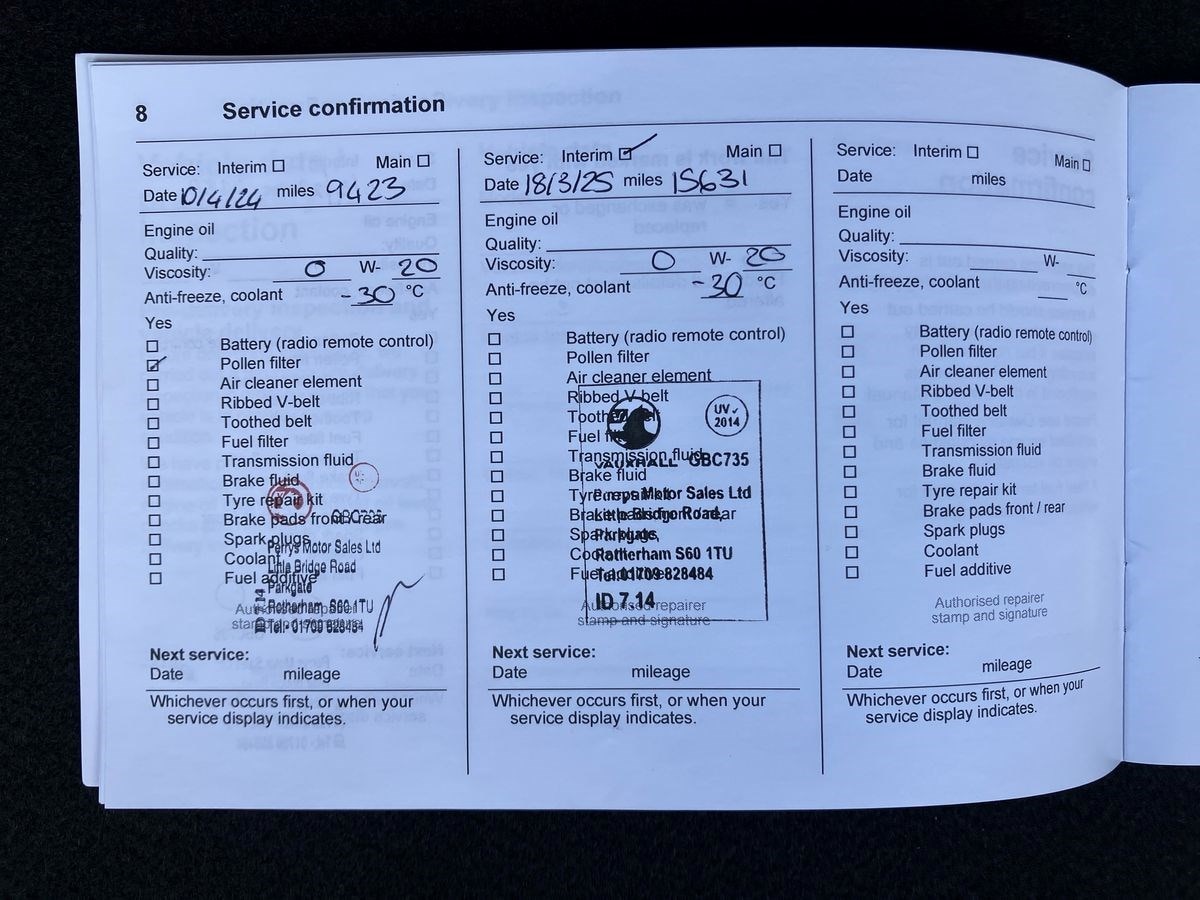 8 Service confirmation
Service: Interim ☐ Main ☐
Date 10/4/24 miles 9423
Engine oil
Quality:
Viscosity: 0 W- 20
Anti-freeze, coolant -30 °C
Yes
☐ Battery (radio remote control)
☑ Pollen filter
☐ Air cleaner element
☐ Ribbed V-belt
☐ Toothed belt
☐ Fuel filter
☐ Transmission fluid
☐ Brake fluid
☐ Tyre repair kit
☐ Brake pads front / rear
GBC735
☐ Spark plugs
Perrys Motor Sales Ltd
☐ Coolant
Little Bridge Road
☐ Fuel additive
Parkgate
Rotherham S60 1TU
Tel: 01709 828484
Authorised repairer
stamp and signature
Next service:
Date mileage
Whichever occurs first, or when your
service display indicates.
Service: Interim ☑ Main ☐
Date 18/3/25 miles 15631
Engine oil
Quality:
Viscosity: 0 W- 20
Anti-freeze, coolant -30 °C
Yes
☐ Battery (radio remote control)
☐ Pollen filter
☐ Air cleaner element
☐ Ribbed V-belt
☐ Toothed belt
UV✓
2014
☐ Fuel filter
☐ Transmission fluid
VAUXHALL GBC735
☐ Brake fluid
☐ Tyre repair kit
Perrys Motor Sales Ltd
☐ Brake pads front / rear
Little Bridge Road,
☐ Spark plugs
Parkgate,
☐ Coolant
Rotherham S60 1TU
☐ Fuel additive
Tel: 01709 828484
ID 7.14
Authorised repairer
stamp and signature
Next service:
Date mileage
Whichever occurs first, or when your
service display indicates.
Service: Interim ☐ Main ☐
Date miles
Engine oil
Quality:
Viscosity: W-
Anti-freeze, coolant °C
Yes
☐ Battery (radio remote control)
☐ Pollen filter
☐ Air cleaner element
☐ Ribbed V-belt
☐ Toothed belt
☐ Fuel filter
☐ Transmission fluid
☐ Brake fluid
☐ Tyre repair kit
☐ Brake pads front / rear
☐ Spark plugs
☐ Coolant
☐ Fuel additive
Authorised repairer
stamp and signature
Next service:
Date mileage
Whichever occurs first, or when your
service display indicates.